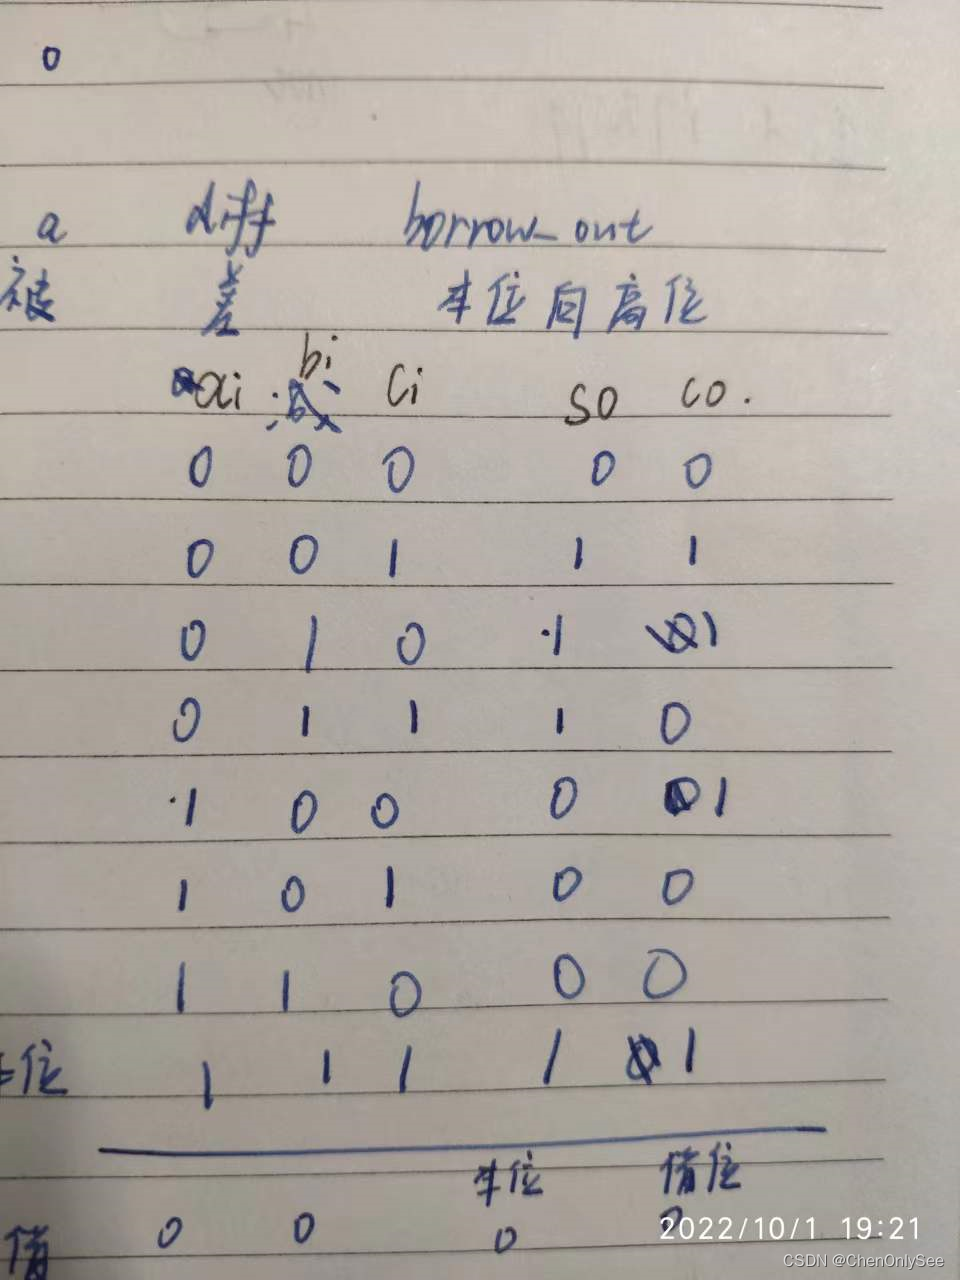 0
a diff borrow_out
被 差 本位向高位
ai bi Ci SO CO.
0 0 0 0 0
0 0 1 1 1
0 1 0 1 1
0 1 1 1 0
1 0 0 0 1
1 0 1 0 0
1 1 0 0 0
本位 1 1 1 1 1
本位 借位
借 0 0 0 0
2022/10/1 19:21
CSDN @ChenOnlySee